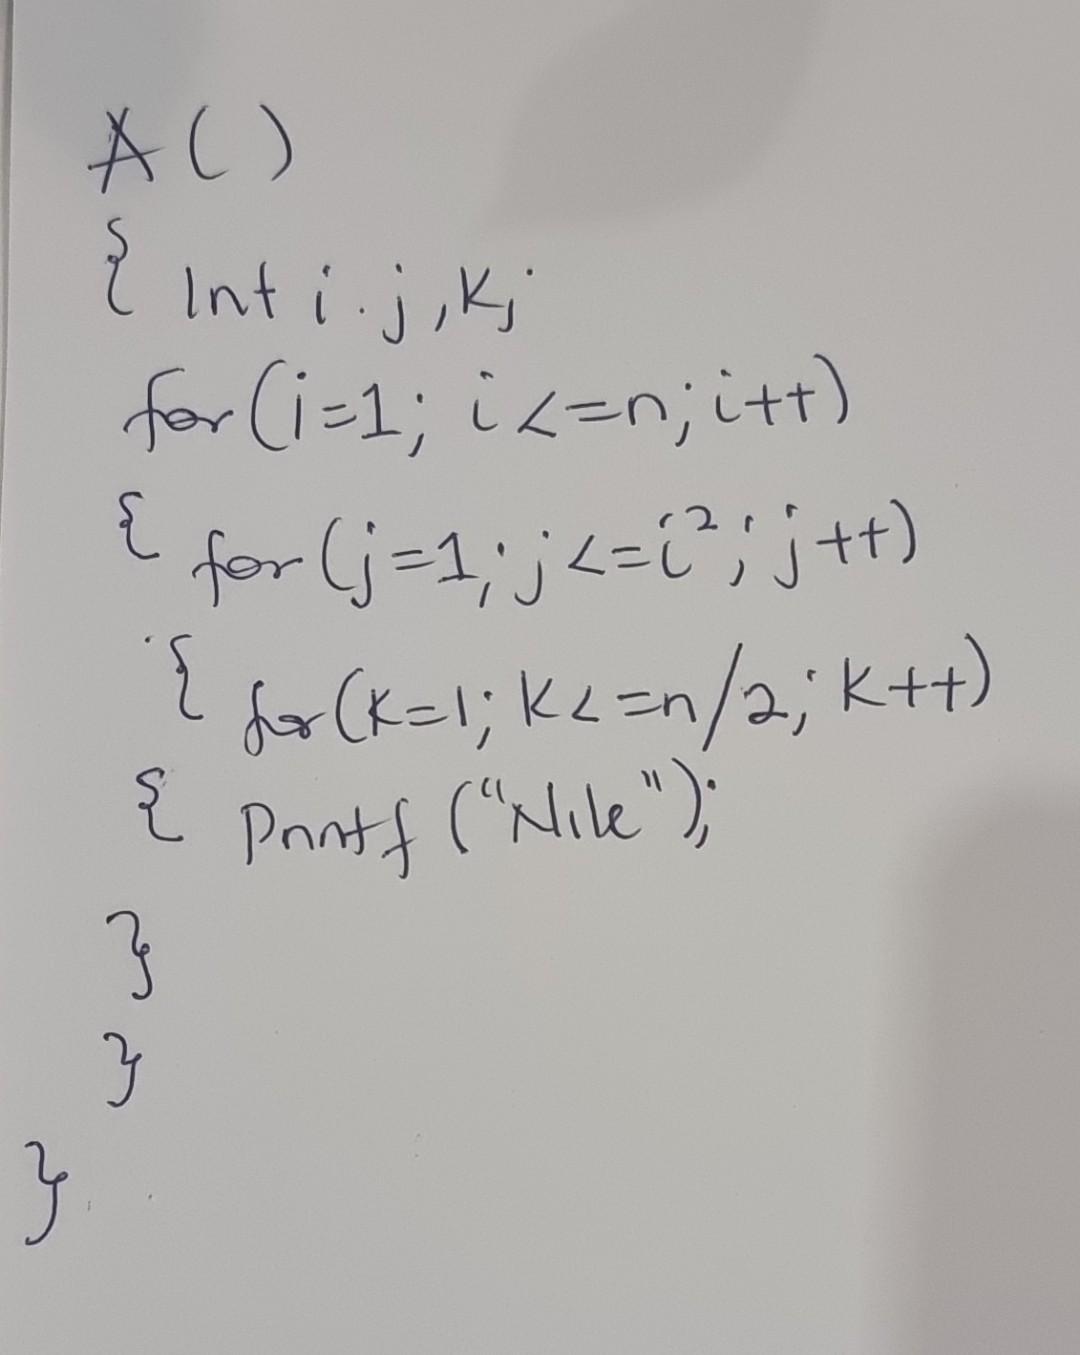 A()
{ Int i.j,K;
for(i=1; i<=n;i++)
{ for(j=1;j<=i²;j++)
{ for(K=1; K<=n/2;K++)
{ Printf ("Nile");
}
}
}